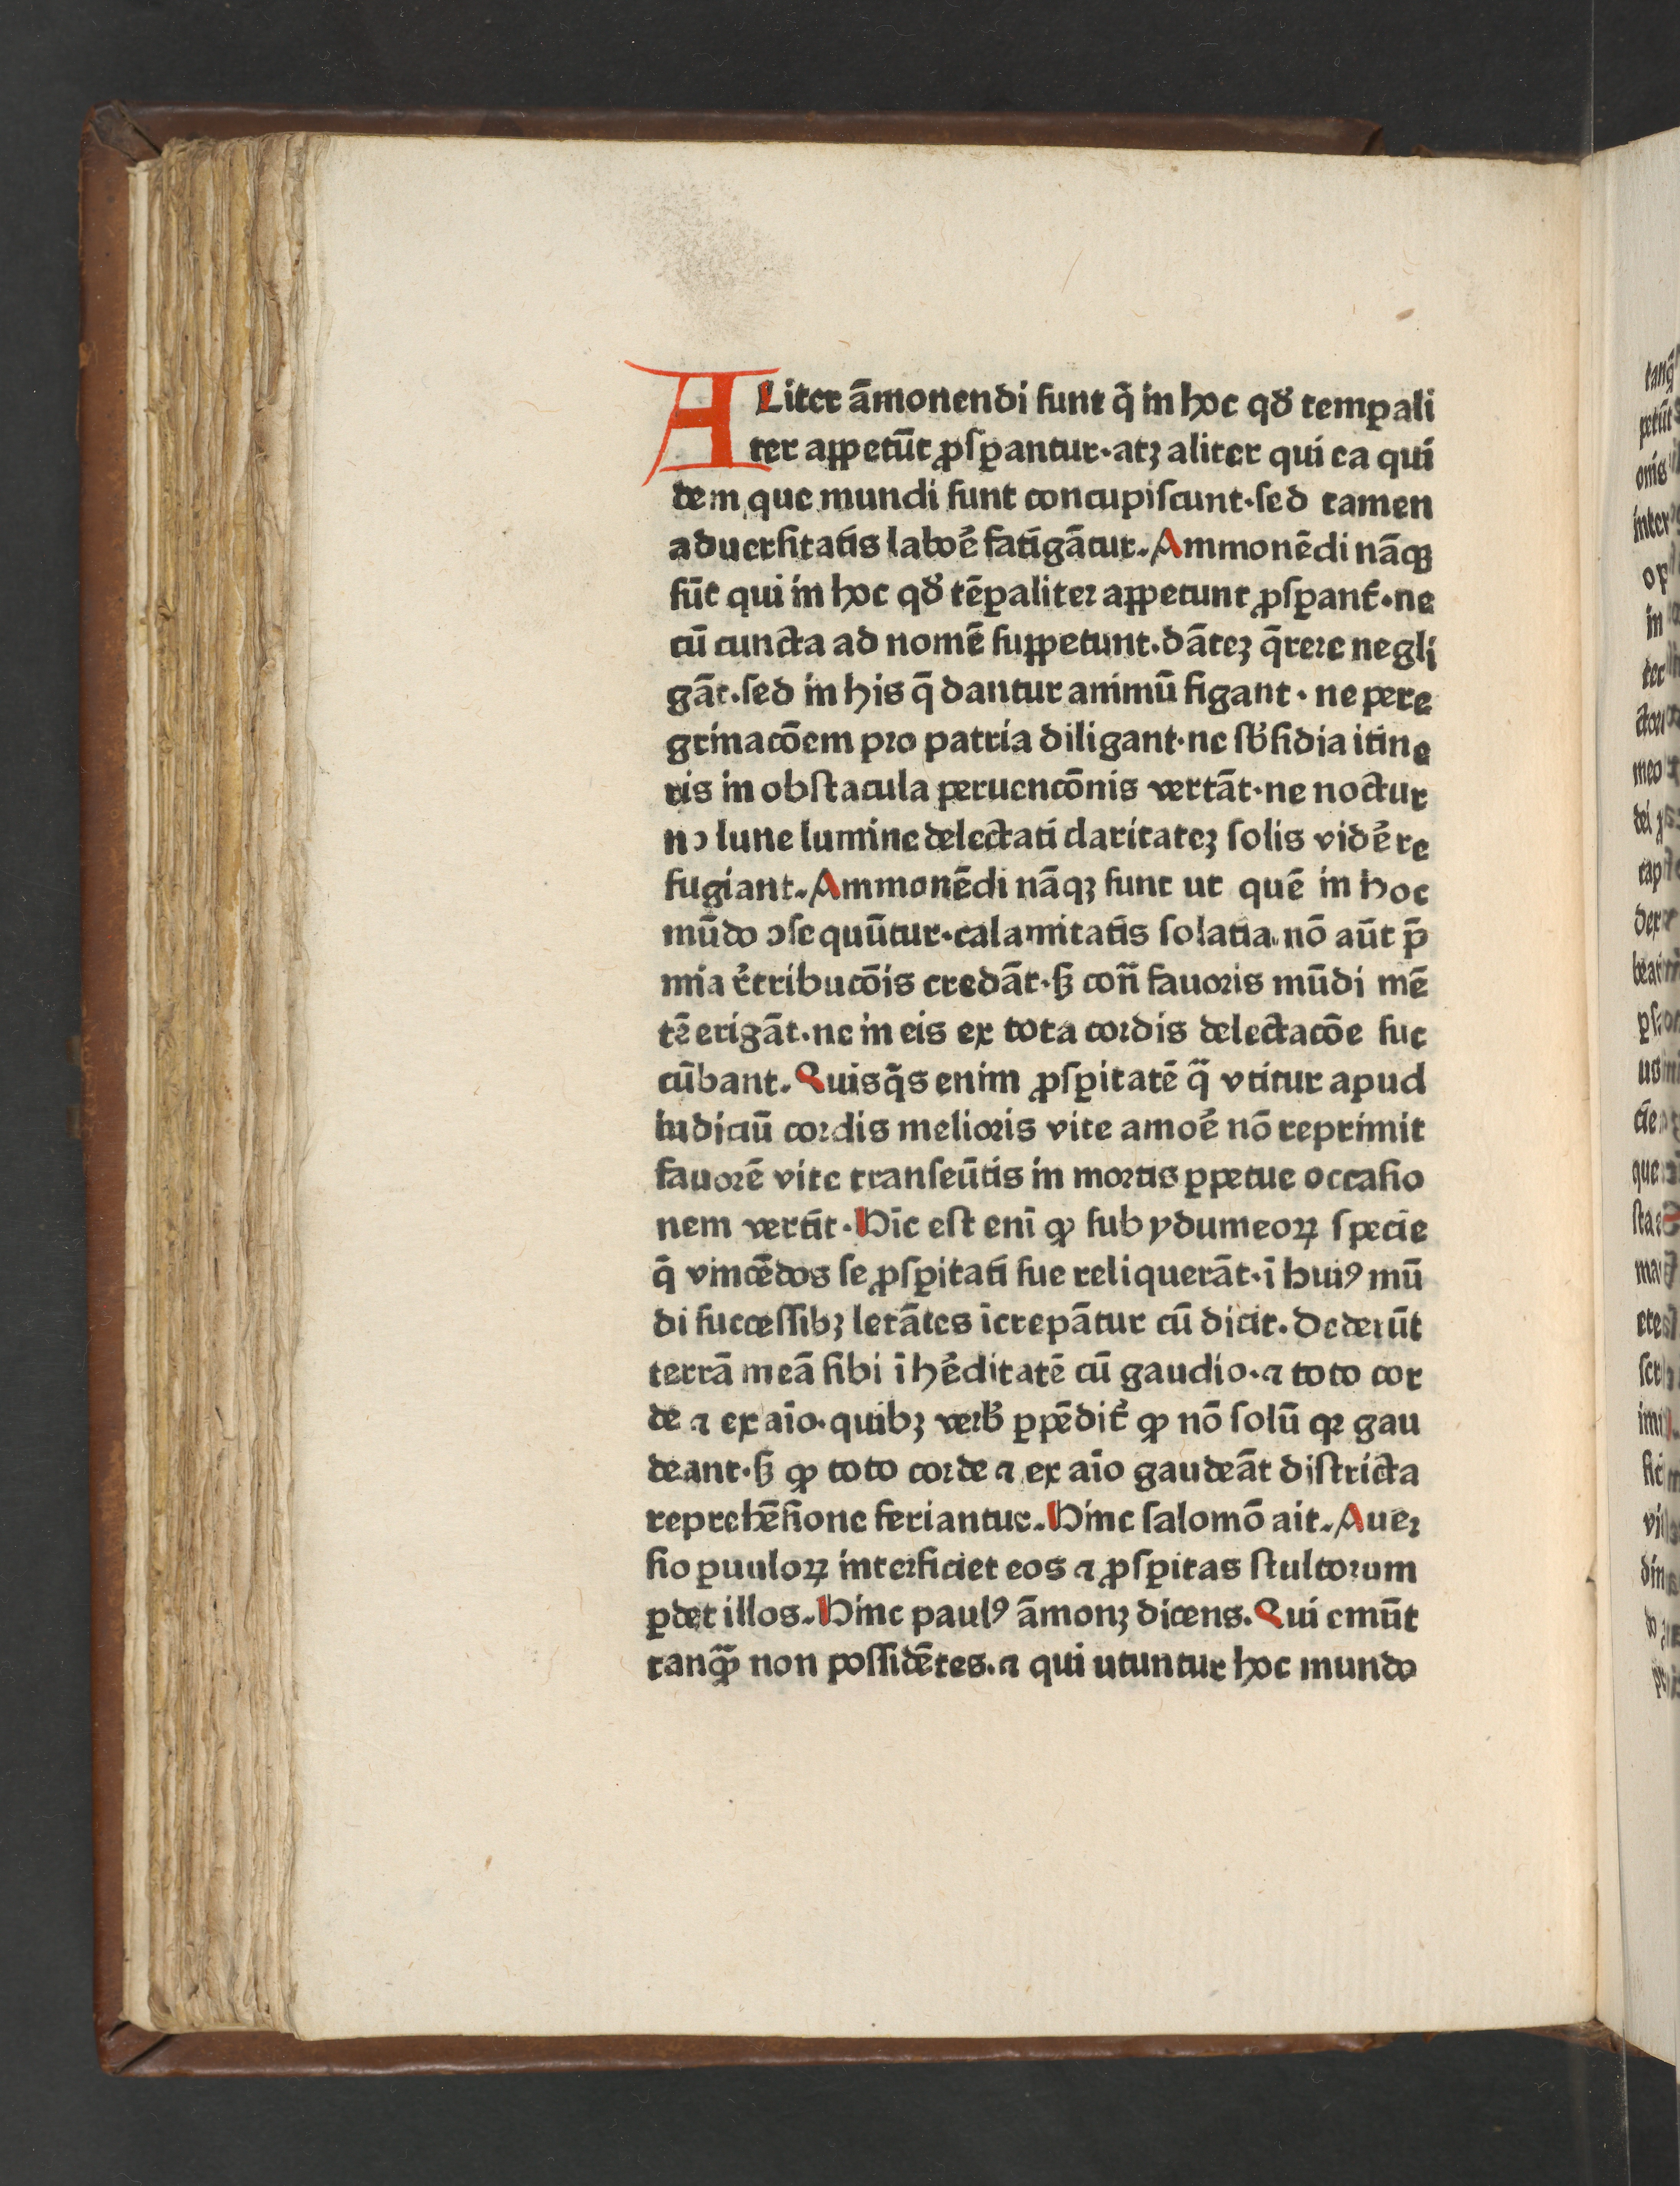 ALiter āmonendi sunt q̄ in hoc qď temꝑali
ter aꝑpetūt ꝓsꝑantur·atꝫ aliter qui ea qui
dem que mundi sunt concupiſcunt·ſed tamen
aduerſitatis laboē fatigātur. Ammonēdi nāqꝫ
sūt qui in hoc qď tēꝑaliter appetunt ꝓſꝑant᷑·ne
cū cuncta ad nomē suppetunt.dāteꝫ q̄rere negli
gāt.ſed in his q̄ dantur animū figant·ne pere
grinacōem pro patria diligant·ne ſb̄ſidia itine
ris in obſtacula peruencōnis vertāt·ne noctur
no lune lumine delectati claritateꝫ ſolis vidēre
fugiant. Ammonēdi nāqꝫ sunt ut quē in hoc
mūdo ↄſequūtur·calamitatis ſolatia nō aūt p̄
mia ēetribucōis credāt·ſꝫ con̄ fauoris mūdi mē
tē erigāt·ne in eis ex tota cordis delectacōe suc
cūbant. Quisq̄s enim ꝓſꝑitatē q̄ vtitur apud
iudiciū cordis melioris vite amoē nō reprimit
fauorē vite tranſeūtis in mortis ꝑpetue occaſio
nem vertit·Hīc eſt enī ꝙ sub ydumeoꝝ ſpecie
q̄ vincēdos ſe ꝓſꝑitati sue reliquerāt·ī huiꝰ mū
di succeſſibꝫ letātes īcrepātur cū dicit. Dederūt
terrā meā ſibi ī hēditatē cū gaudio·⁊ toto cor
de ⁊ ex aīo·quibꝫ verb̄ ꝑpēdit᷑ ꝙ nō ſolū qꝛ gau
deant·ſꝫ ꝙ toto corde ⁊ ex aīo gaudeāt diſtricta
reprehēſione feriantur. Hinc ſalomō ait. Auer
ſio ꝑuuloꝝ interficiet eos ⁊ ꝓſꝑitas ſtultorum
ꝑdet illos. Hinc paulꝰ āmonꝫ dicens. Qui emūt
tanꝙ̄ non poſſidētes.⁊ qui utuntur hoc mundo